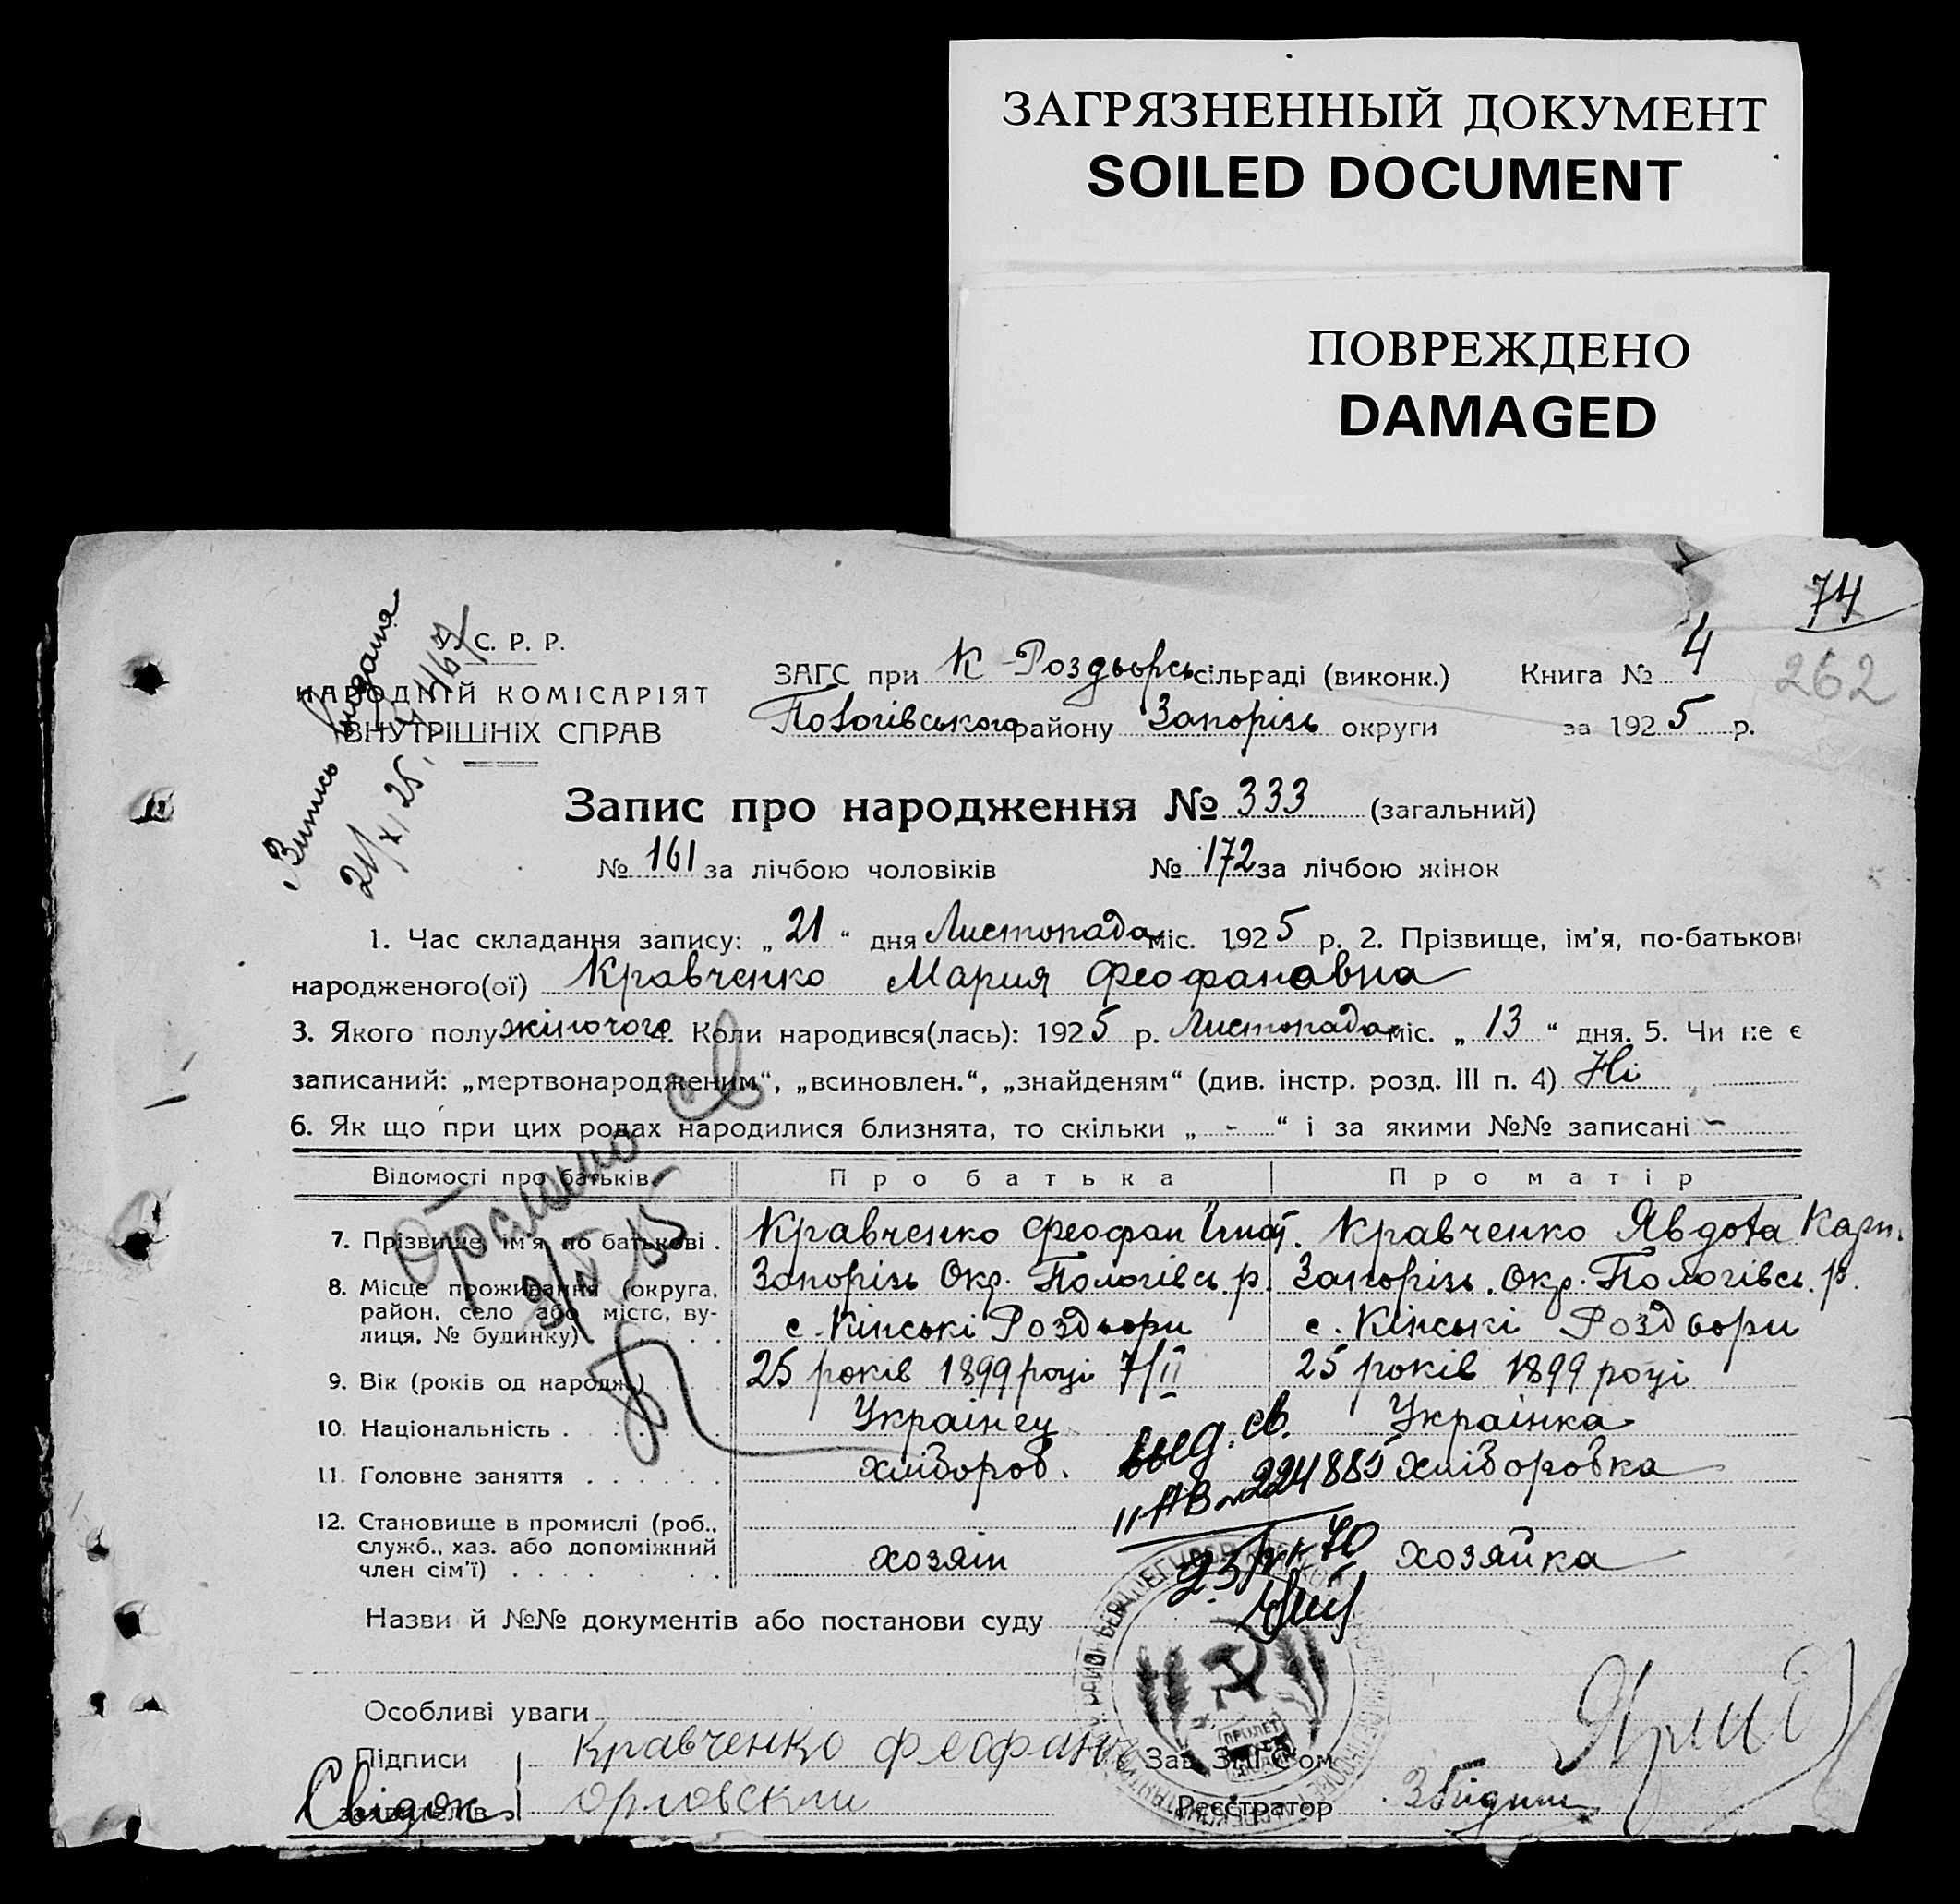 ЗАГРЯЗНЕННЫЙ ДОКУМЕНТ
SOILED DOCUMENT
ПОВРЕЖДЕНО
DAMAGED
74
262
У. С. Р. Р.
НАРОДНІЙ КОМІСАРІЯТ
ВНУТРІШНІХ СПРАВ
Випись видана
21/XI 25.
ЗАГС при К-Роздорсь сільраді (виконк.) Книга № 4
Пологівського району Запорізь округи за 1925 р.
Запис про народження № 333 (загальний)
№ 161 за лічбою чоловіків № 172 за лічбою жінок
1. Час складання запису: „21“ дня Листопада міс. 1925 р. 2. Прізвище, ім'я, по-батькові
народженого(ої) Кравченко Мария Феофановна
3. Якого полу жіночого 4. Коли народився(лась): 1925 р. Листопада міс. „13“ дня. 5. Чи не є
записаний: „мертвонародженим“, „всиновлен.“, „знайденям“ (див. інстр. розд. III п. 4) Ні
6. Як що при цих родах народилися близнята, то скільки „-“ і за якими №№ записані -
Відомості про батьків Про батька Про матір
7. Прізвище, ім'я, по батькові . Кравченко Феофан Ігнат. Кравченко Явдоха Карп.
8. Місце проживання (округа, район, село або місто, вулиця, № будинку) Запорізь Окр. Пологівсь. р. с. Кінські Роздори Запорізь. Окр. Пологівсь. р. с. Кінські Роздори
9. Вік (років од народж.) 25 років 1899 році 7/II 25 років 1899 році
10. Національність . Українец Українка
11. Головне заняття хлібороб. хліборобка
12. Становище в промислі (роб., служб., хаз. або допоміжний член сім'ї) хозяін хозяйка
выд. св.
II-АВ № 224885
Назви й №№ документів або постанови суду
Особливі уваги
Підписи Кравченко Феофан Зав. ЗАГС'ом
Свідок заявителів Орловский Реєстратор